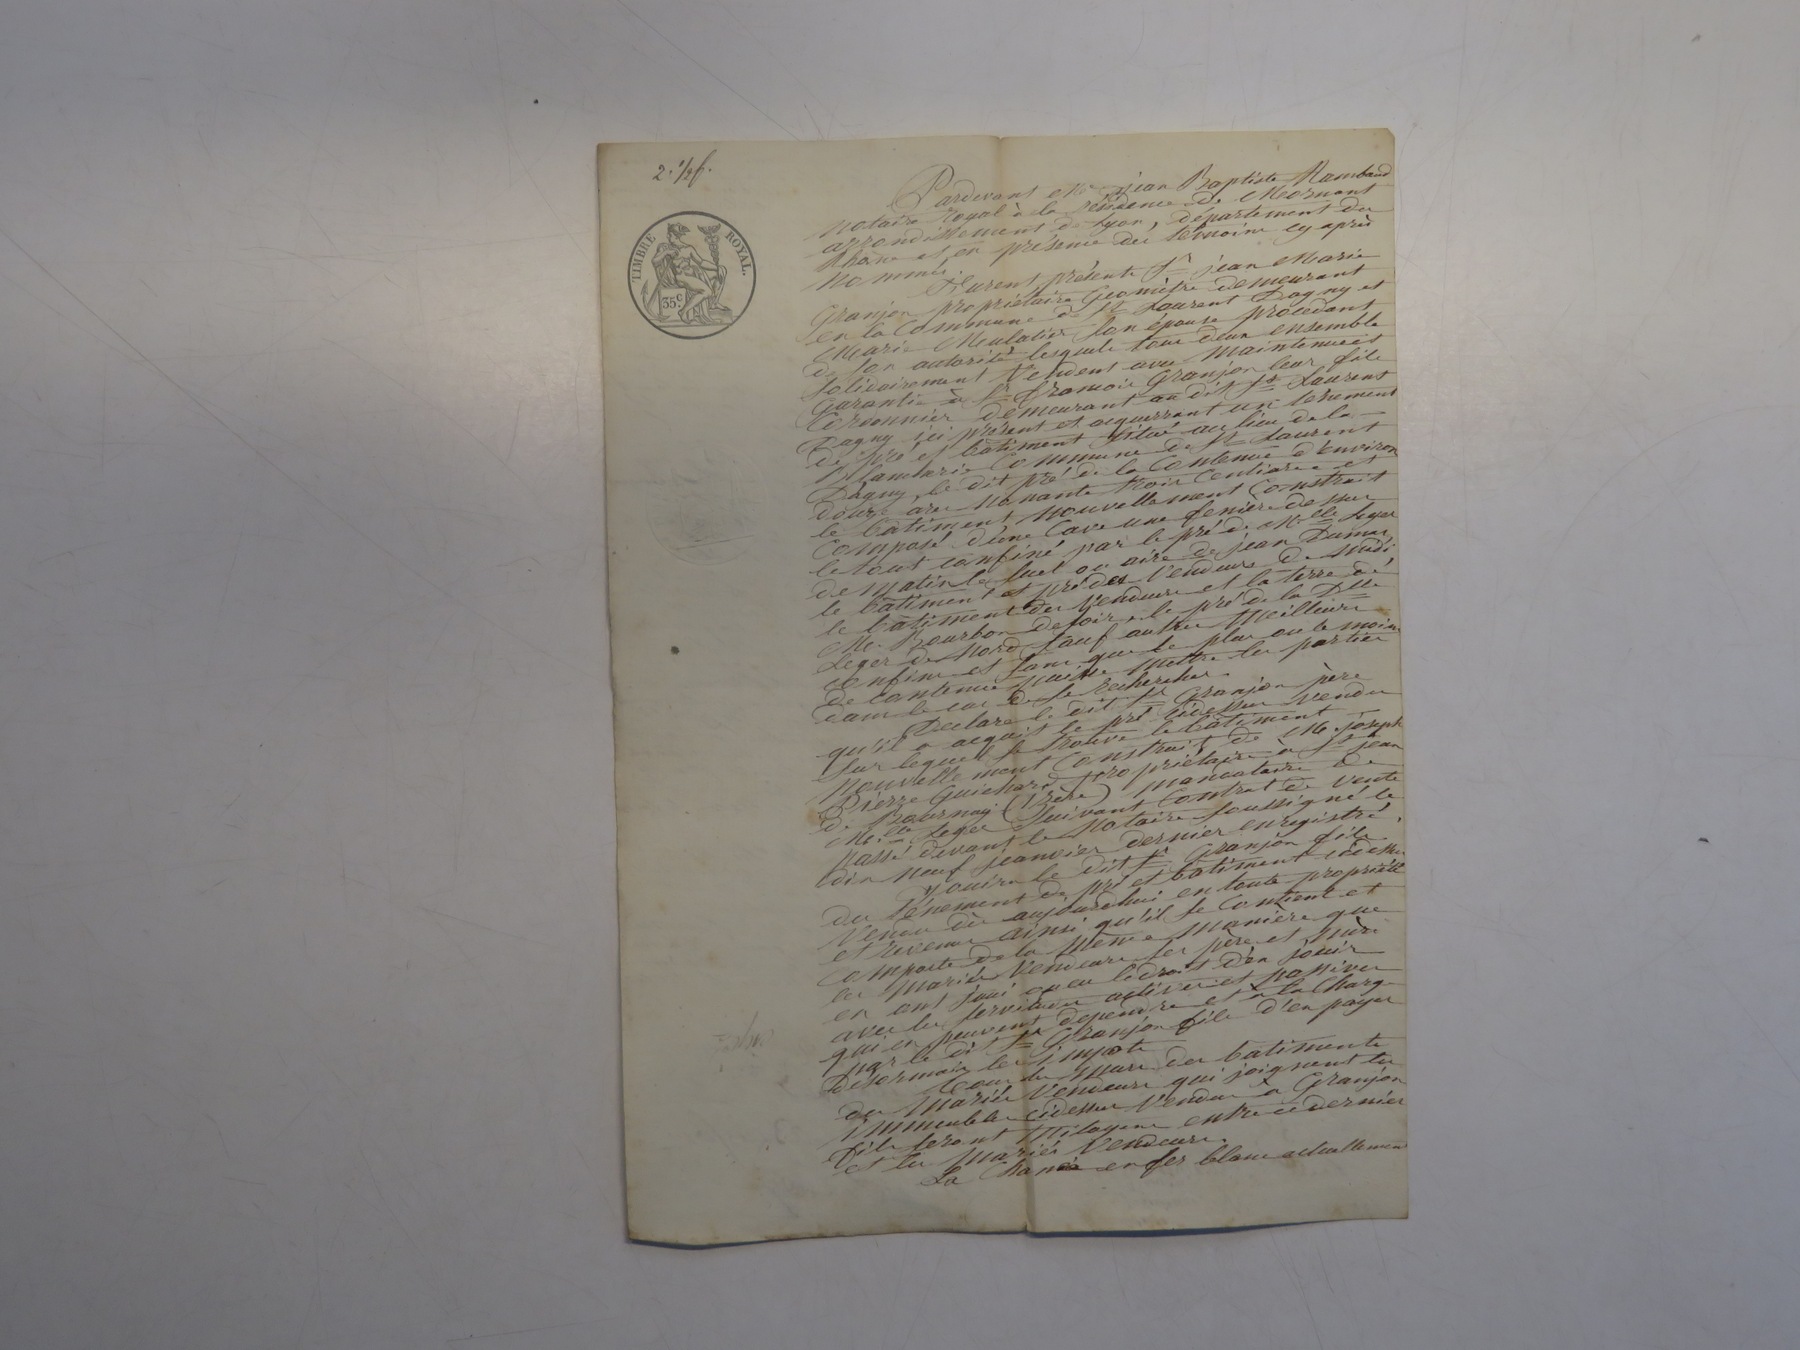 2. 1/2 f.
TIMBRE ROYAL.
35 c
Pardevant Me jean Baptiste Rambaud
notaire Royal à la résidence de Mornant
arrondissement de Lyon, département du
Rhône et en présence des témoins cy après
nommés
Furent présents Sr jean Marie
Granjon propriétaire Géomètre demeurant
en la Commune de St Laurent Dagny et
Marie Mulatier son épouse procédant
de son autorité lesquels tous deux ensemble
solidairement Vendent avec maintenues et
Garantie à Sr françois Granjon leur fils
Cordonnier demeurant au dit St Laurent
Dagny ici présent et acquerrant un tenement
de pré et bâtiment situé au lieu de la
Commune de St Laurent
Dagny, le dit pré de la Contenue d'Environ
douze ares Nonante trois Centiares et
le bâtiment nouvellement Construit
Composé d'une Cave une fenière dessus
le tout confiné par le pré de Melle Leger
de Matin le suel ou aire de jean Dumas,
le bâtiment et pré des Vendeurs de midi
le bâtiment des Vendeurs et la terre de
Me Bourbon de soir et le pré de la Dlle
Leger de Nord sauf autres Meilleurs
confins et sans que le plus ou le moins
de contenue puisse mettre les parties
dans le cas de se rechercher.
Declare le dit Sr Granjon père
qu'il a acquis le pré cidessus vendu
sur lequel se trouve le bâtiment
nouvellement Construit, de Mr joseph
Pierre Guichard propriétaire à St jean
de Bournay (Isère) mandataire de
Melle Leger suivant Contrat de Vente
passé devant le Notaire soussigné le
dix neuf janvier dernier enregistré.
jouira le dit Sr Granjon fils
du Ténement de pré et bâtiment cidessus
Vendu dès aujourdhui en toute propriété
et revenus ainsi qu'il se Contient et
Comporte de la même manière que
les Mariés Vendeurs ses père et mère
en ont joui ou eu ledroit d'en jouir
avec les servitudes actives et passives
qui en peuvent dépendre et à la Charge
par le dit Sr Granjon fils d'en payer
Désormais les impots
Tous les murs des batiments
des Mariés Vendeurs qui joignent les
immeubles cidessus Vendus à Granjon
fils seront Mitoyens entre ce dernier
et les Mariés Vendeurs.
La en fer blanc actuellement